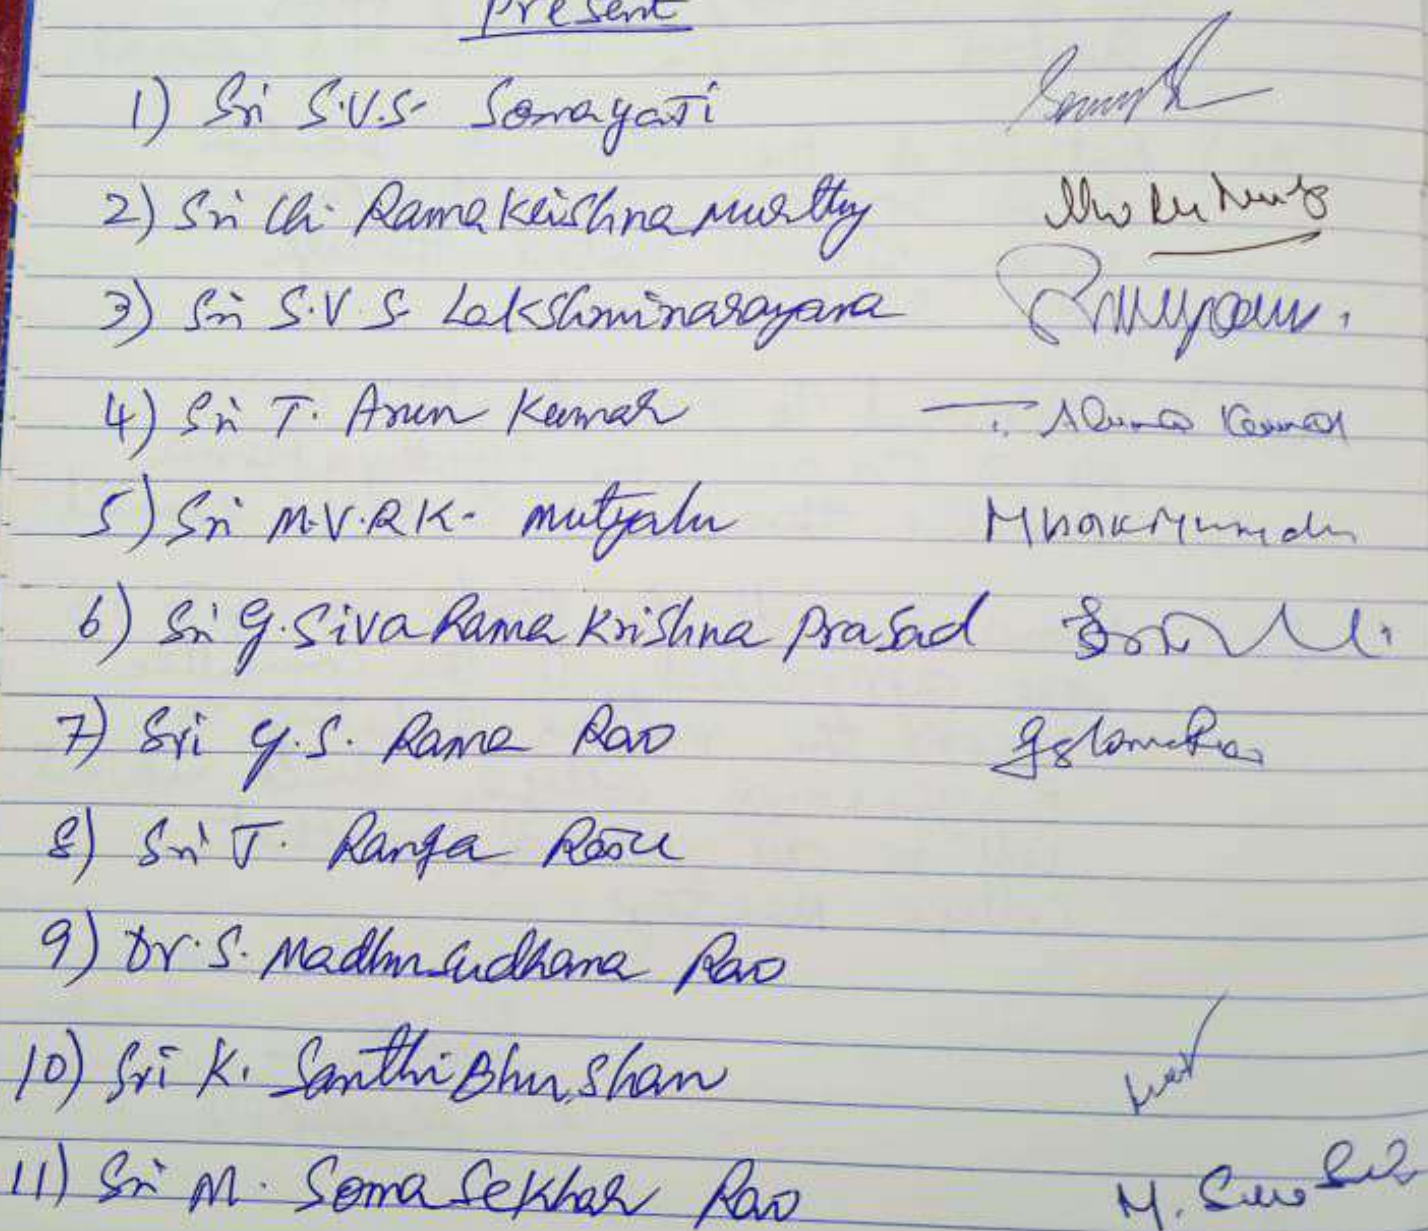 Present
1) Sri S.V.S. Somayaji
2) Sri Ch. Rama Krishna Murthy
3) Sri S.V.S. Lakshminarayana
4) Sri T. Arun Kumar T. Aruna Kumar
5) Sri M.V.R.K. Mutyalu
6) Sri G. Siva Rama Krishna Prasad
7) Sri G.S. Rama Rao GSRamaRao
8) Sri T. Ranga Raju
9) Dr. S. Madhusudhana Rao
10) Sri K. Santhi Bhushan
11) Sri M. Soma Sekhar Rao